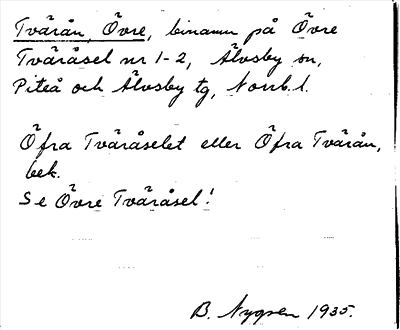 Tvärån, Övre, binamn på Övre
Tväråsel nr 1-2, Älvsby sn,
Piteå och Älvsby tg, Norrb. l.
Öfra Tväråselet eller Öfra Tvärån,
bek.
Se Övre Tväråsel!
B. Nygren 1935.